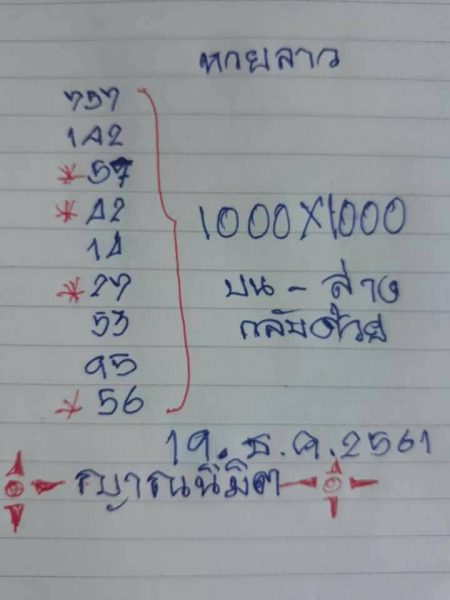 หวยลาว
757
142
*57
*42
14
*27
53
95
*56
1000X1000
บน - ล่าง
กลับด้วย
19. ธ.ค. 2561
ญาณนิมิต